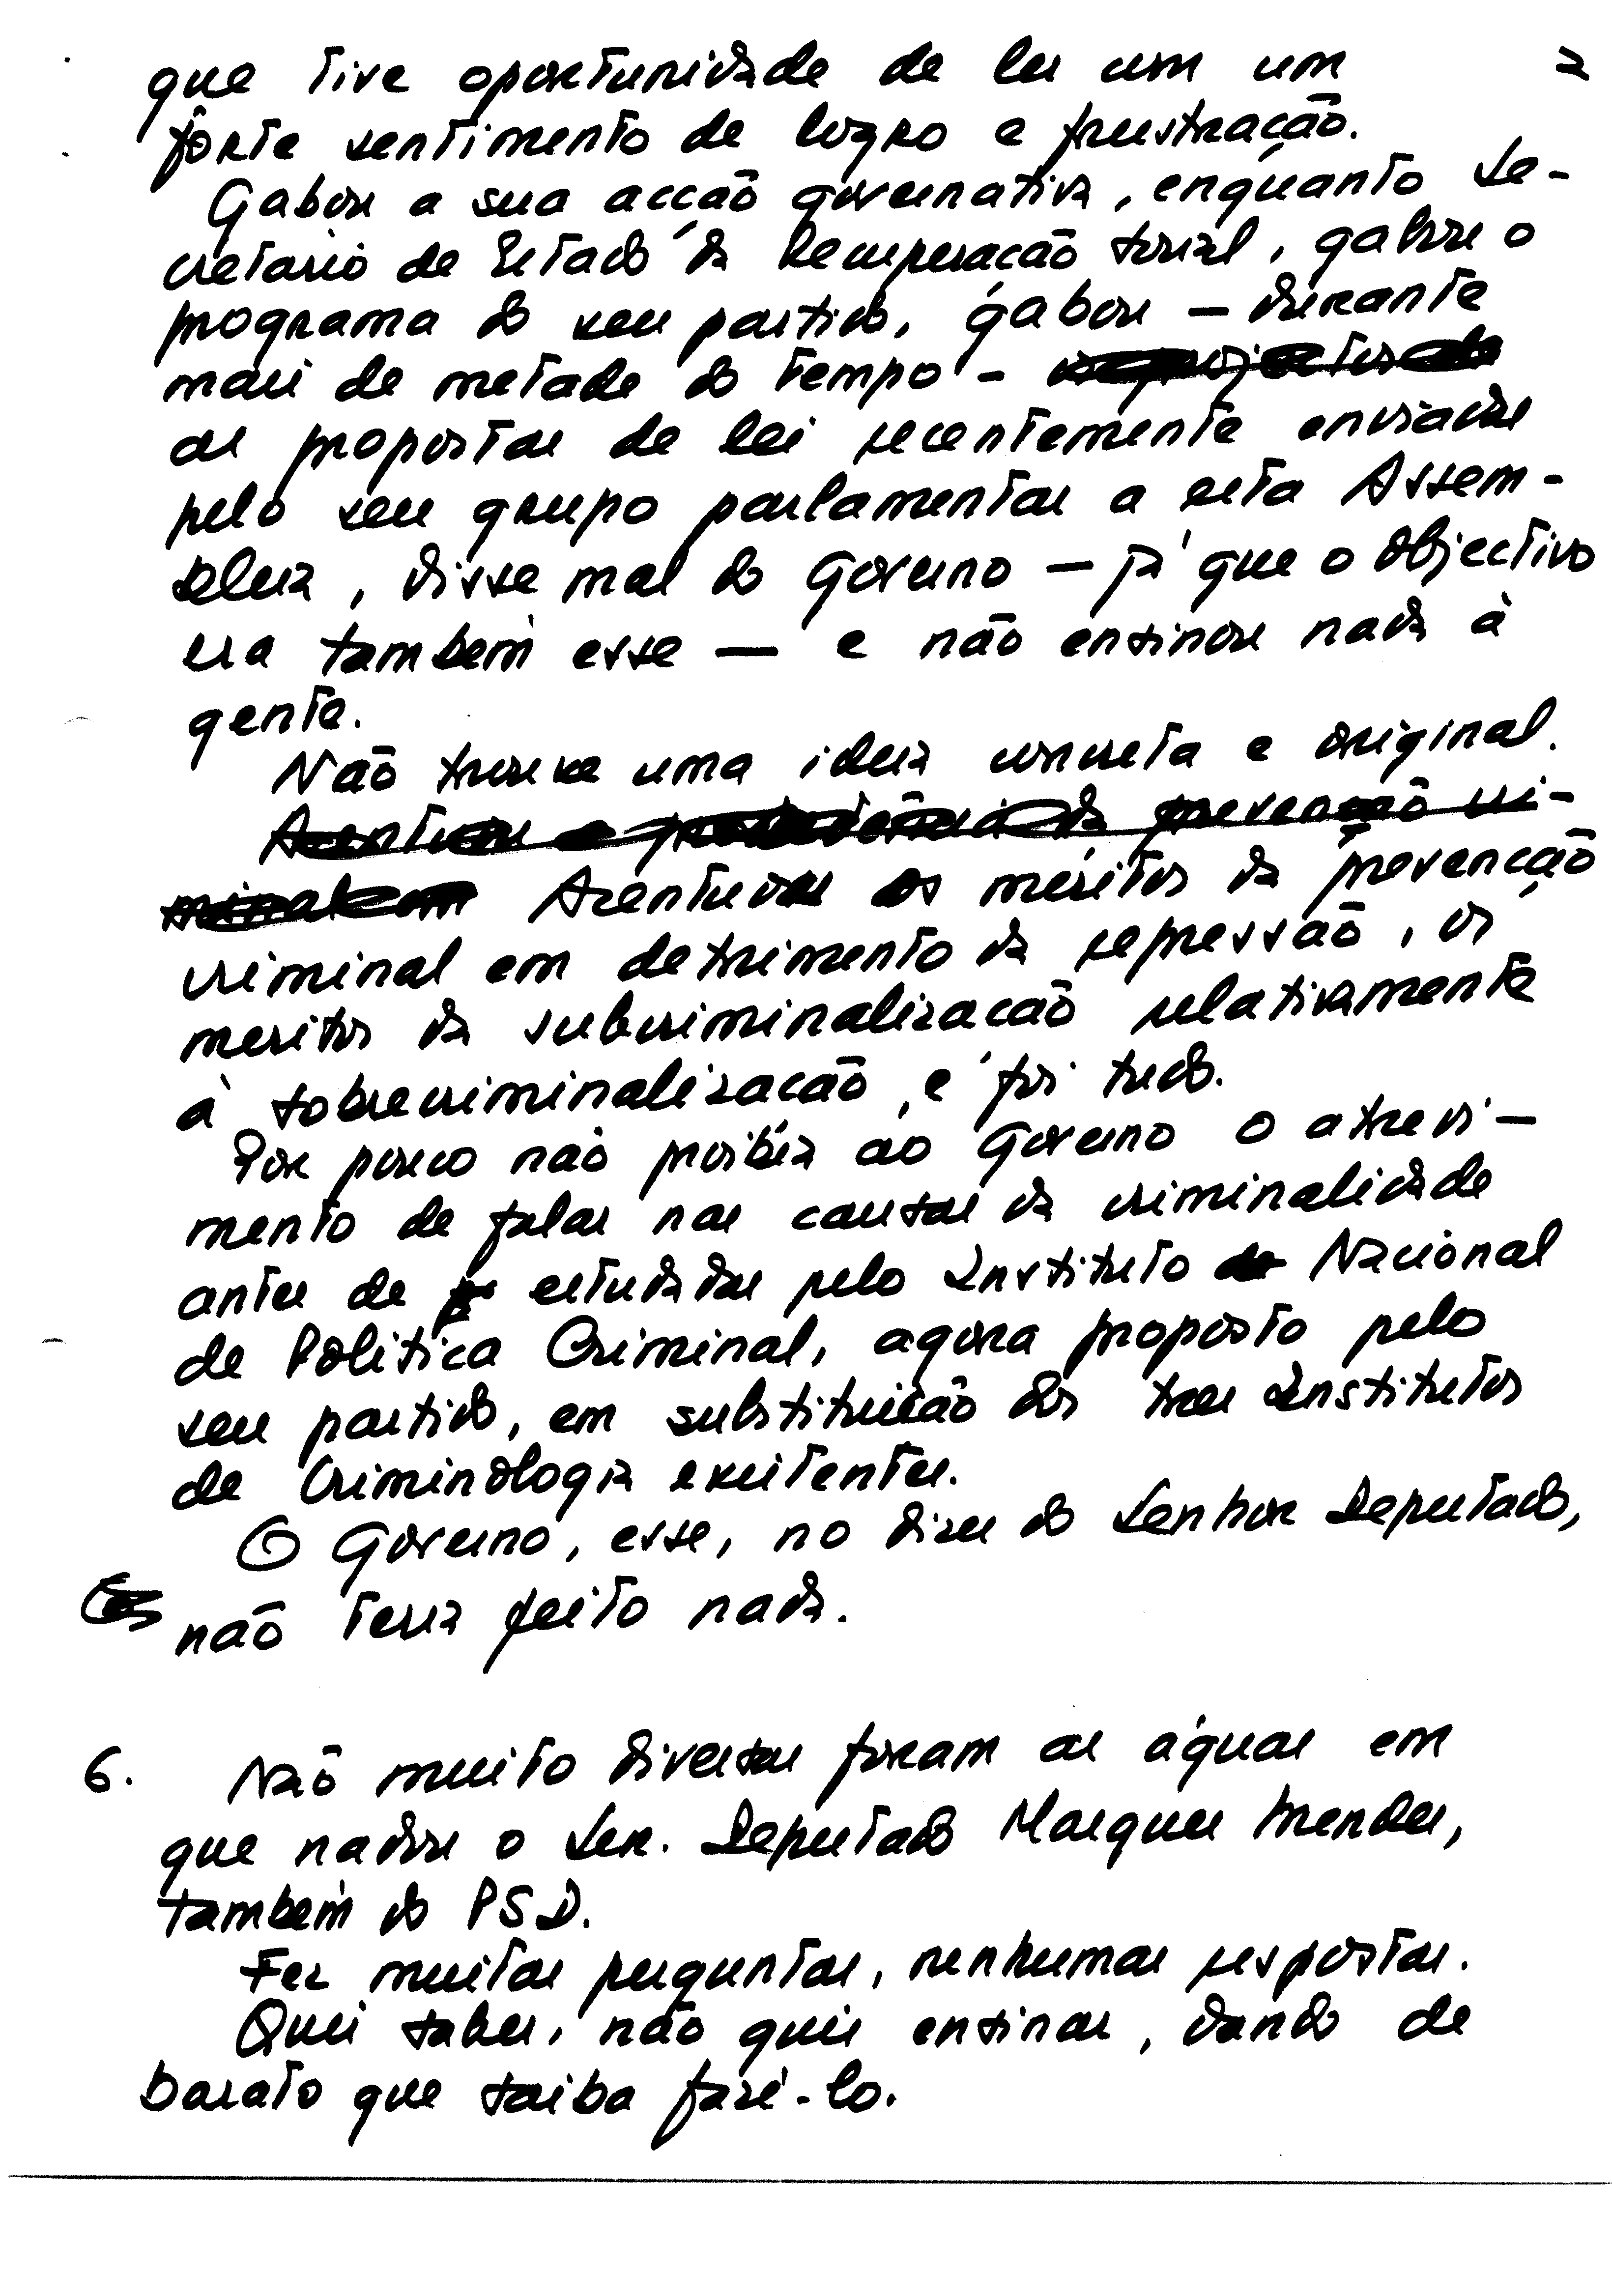 que tive oportunidade de ler com um 2
forte sentimento de logro e frustração.
Gabou a sua acção governativa, enquanto Se-
cretário de Estado da Recuperação Social, gabou o
programa do seu partido, gabou — durante
mais de metade do tempo –
as propostas de lei recentemente enviadas
pelo seu grupo parlamentar a esta Assem-
bleia, disse mal do Governo — já que o objectivo
era também esse — e não ensinou nada à
gente.
Não trouxe uma ideia concreta e original.
Acentuou a da prevenção cri-
minal em Acentuou os méritos da prevenção
criminal em detrimento da repressão, os
meritos da subcriminalização relativamente
à sobrecriminalização, e foi tudo.
Por pouco não proibia ao Governo o atrevi-
mento de falar nas causas da criminalidade
antes de estudadas pelo Instituto de Nacional
de Politica Criminal, agora proposto pelo
seu partido, em substituição dos tres Institutos
de Criminologia existentes.
O Governo, esse, no dizer do Senhor Deputado,
não teria feito nada.
6. Não muito diversas foram as águas em
que nadou o Sen. Deputado Marques Mendes,
também do PSD.
Fez muitas perguntas, nenhumas respostas.
Quis saber, não quis ensinar, dando de
barato que saiba fazê-lo.